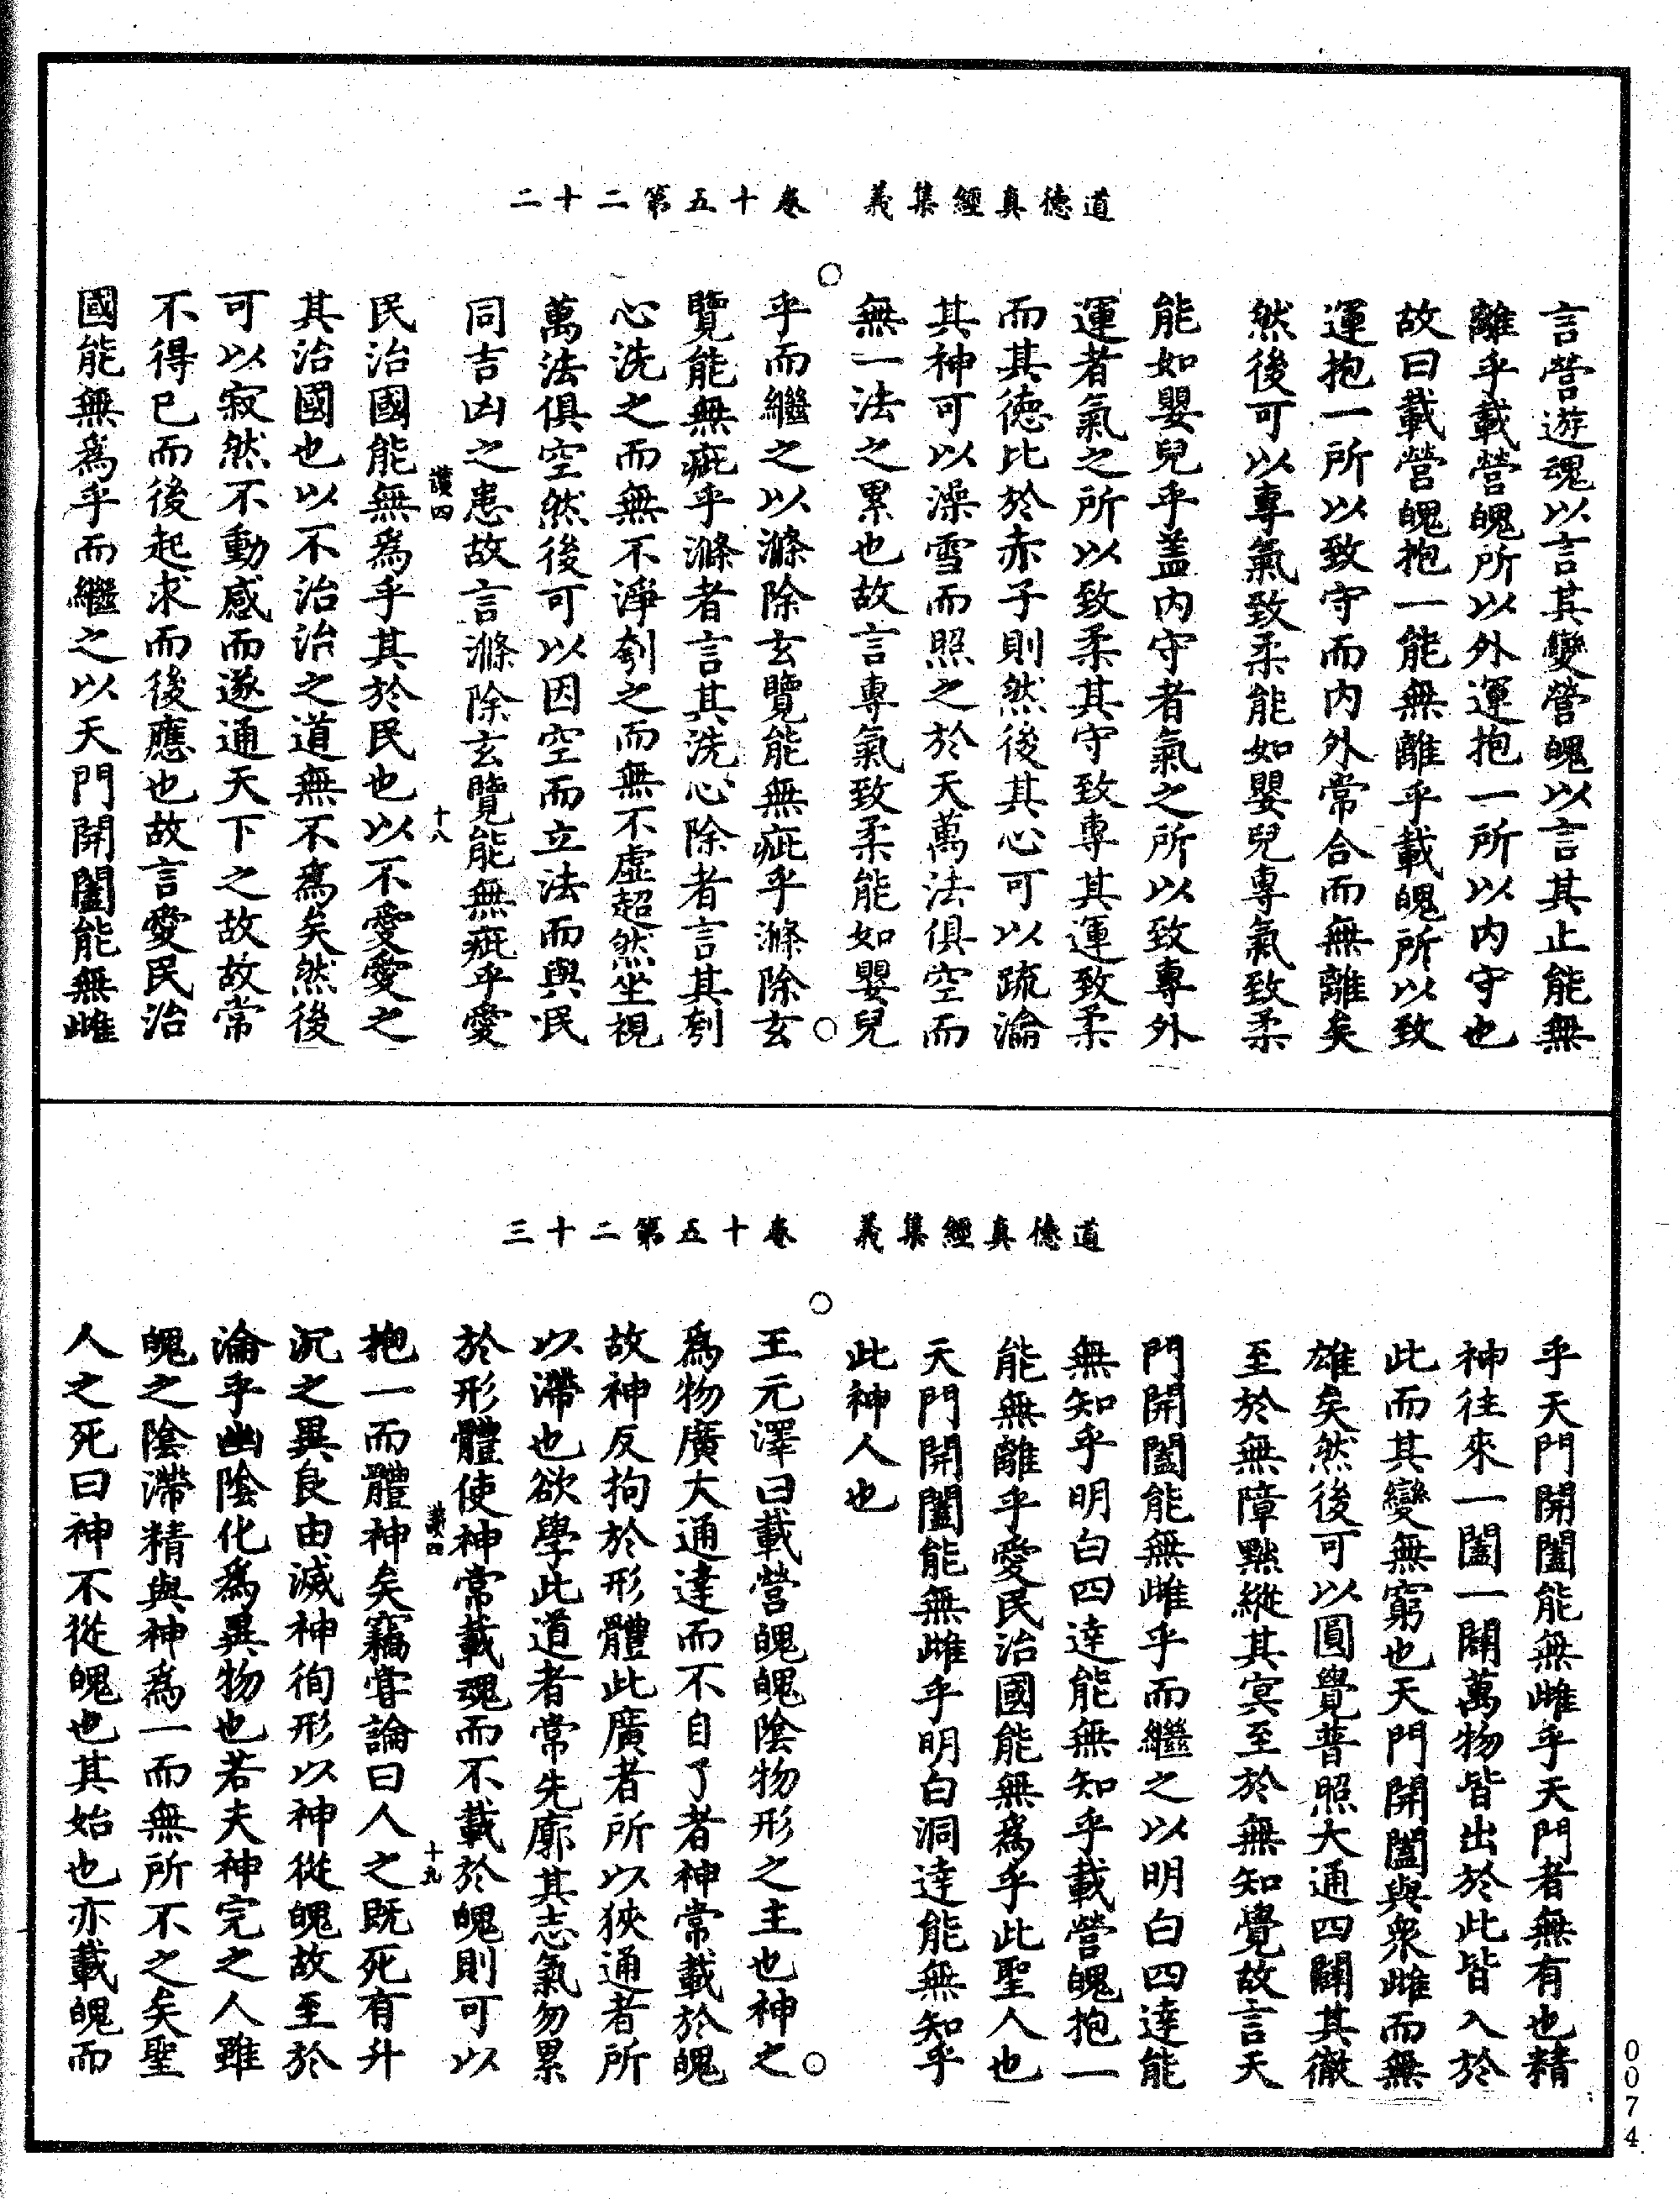 道德真經集義　卷十五第二十二
言營遊魂以言其變營魄以言其止能無
離乎載營魄所以外運抱一所以內守也
故曰載營魄抱一能無離乎載魄所以致
運抱一所以致守而內外常合而無離矣
然後可以專氣致柔能如嬰兒專氣致柔
能如嬰兒乎盖內守者氣之所以致專外
運者氣之所以致柔其守致專其運致柔
而其德比於赤子則然後其心可以疏瀹
其神可以澡雪而照之於天萬法俱空而
無一法之累也故言專氣致柔能如嬰兒
乎而繼之以滌除玄覽能無疵乎滌除玄
覽能無疵乎滌者言其洗心除者言其刳
心洗之而無不淨刳之而無不虛超然坐視
萬法俱空然後可以因空而立法而與民
同吉凶之患故言滌除玄覽能無疵乎愛
讚四　十八
民治國能無爲乎其於民也以不愛愛之
其治國也以不治治之道無不爲矣然後
可以寂然不動感而遂通天下之故故常
不得已而後起求而後應也故言愛民治
國能無爲乎而繼之以天門開闔能無雌
道德真經集義　卷十五第二十三
乎天門開闔能無雌乎天門者無有也精
神往來一闔一闢萬物皆出於此皆入於
此而其變無窮也天門開闔與衆雌而無
雄矣然後可以圓覺普照大通四闢其徹
至於無障㸃縱其冥至於無知覺故言天
門開闔能無雌乎而繼之以明白四達能
無知乎明白四達能無知乎載營魄抱一
能無離乎愛民治國能無爲乎此聖人也
天門開闔能無雌乎明白洞達能無知乎
此神人也
王元澤曰載營魄魄陰物形之主也神之
爲物廣大通達而不自了者神常載於魄
故神反拘於形體此廣者所以狹通者所
以滯也欲學此道者常先廓其志氣勿累
於形體使神常載魂而不載於魄則可以
讚四　十九
抱一而體神矣竊甞論曰人之既死有升
沉之異良由滅神徇形以神從魄故至於
淪乎幽陰化爲異物也若夫神完之人雖
魄之陰滯精與神爲一而無所不之矣聖
人之死曰神不從魄也其始也亦載魄而
0074